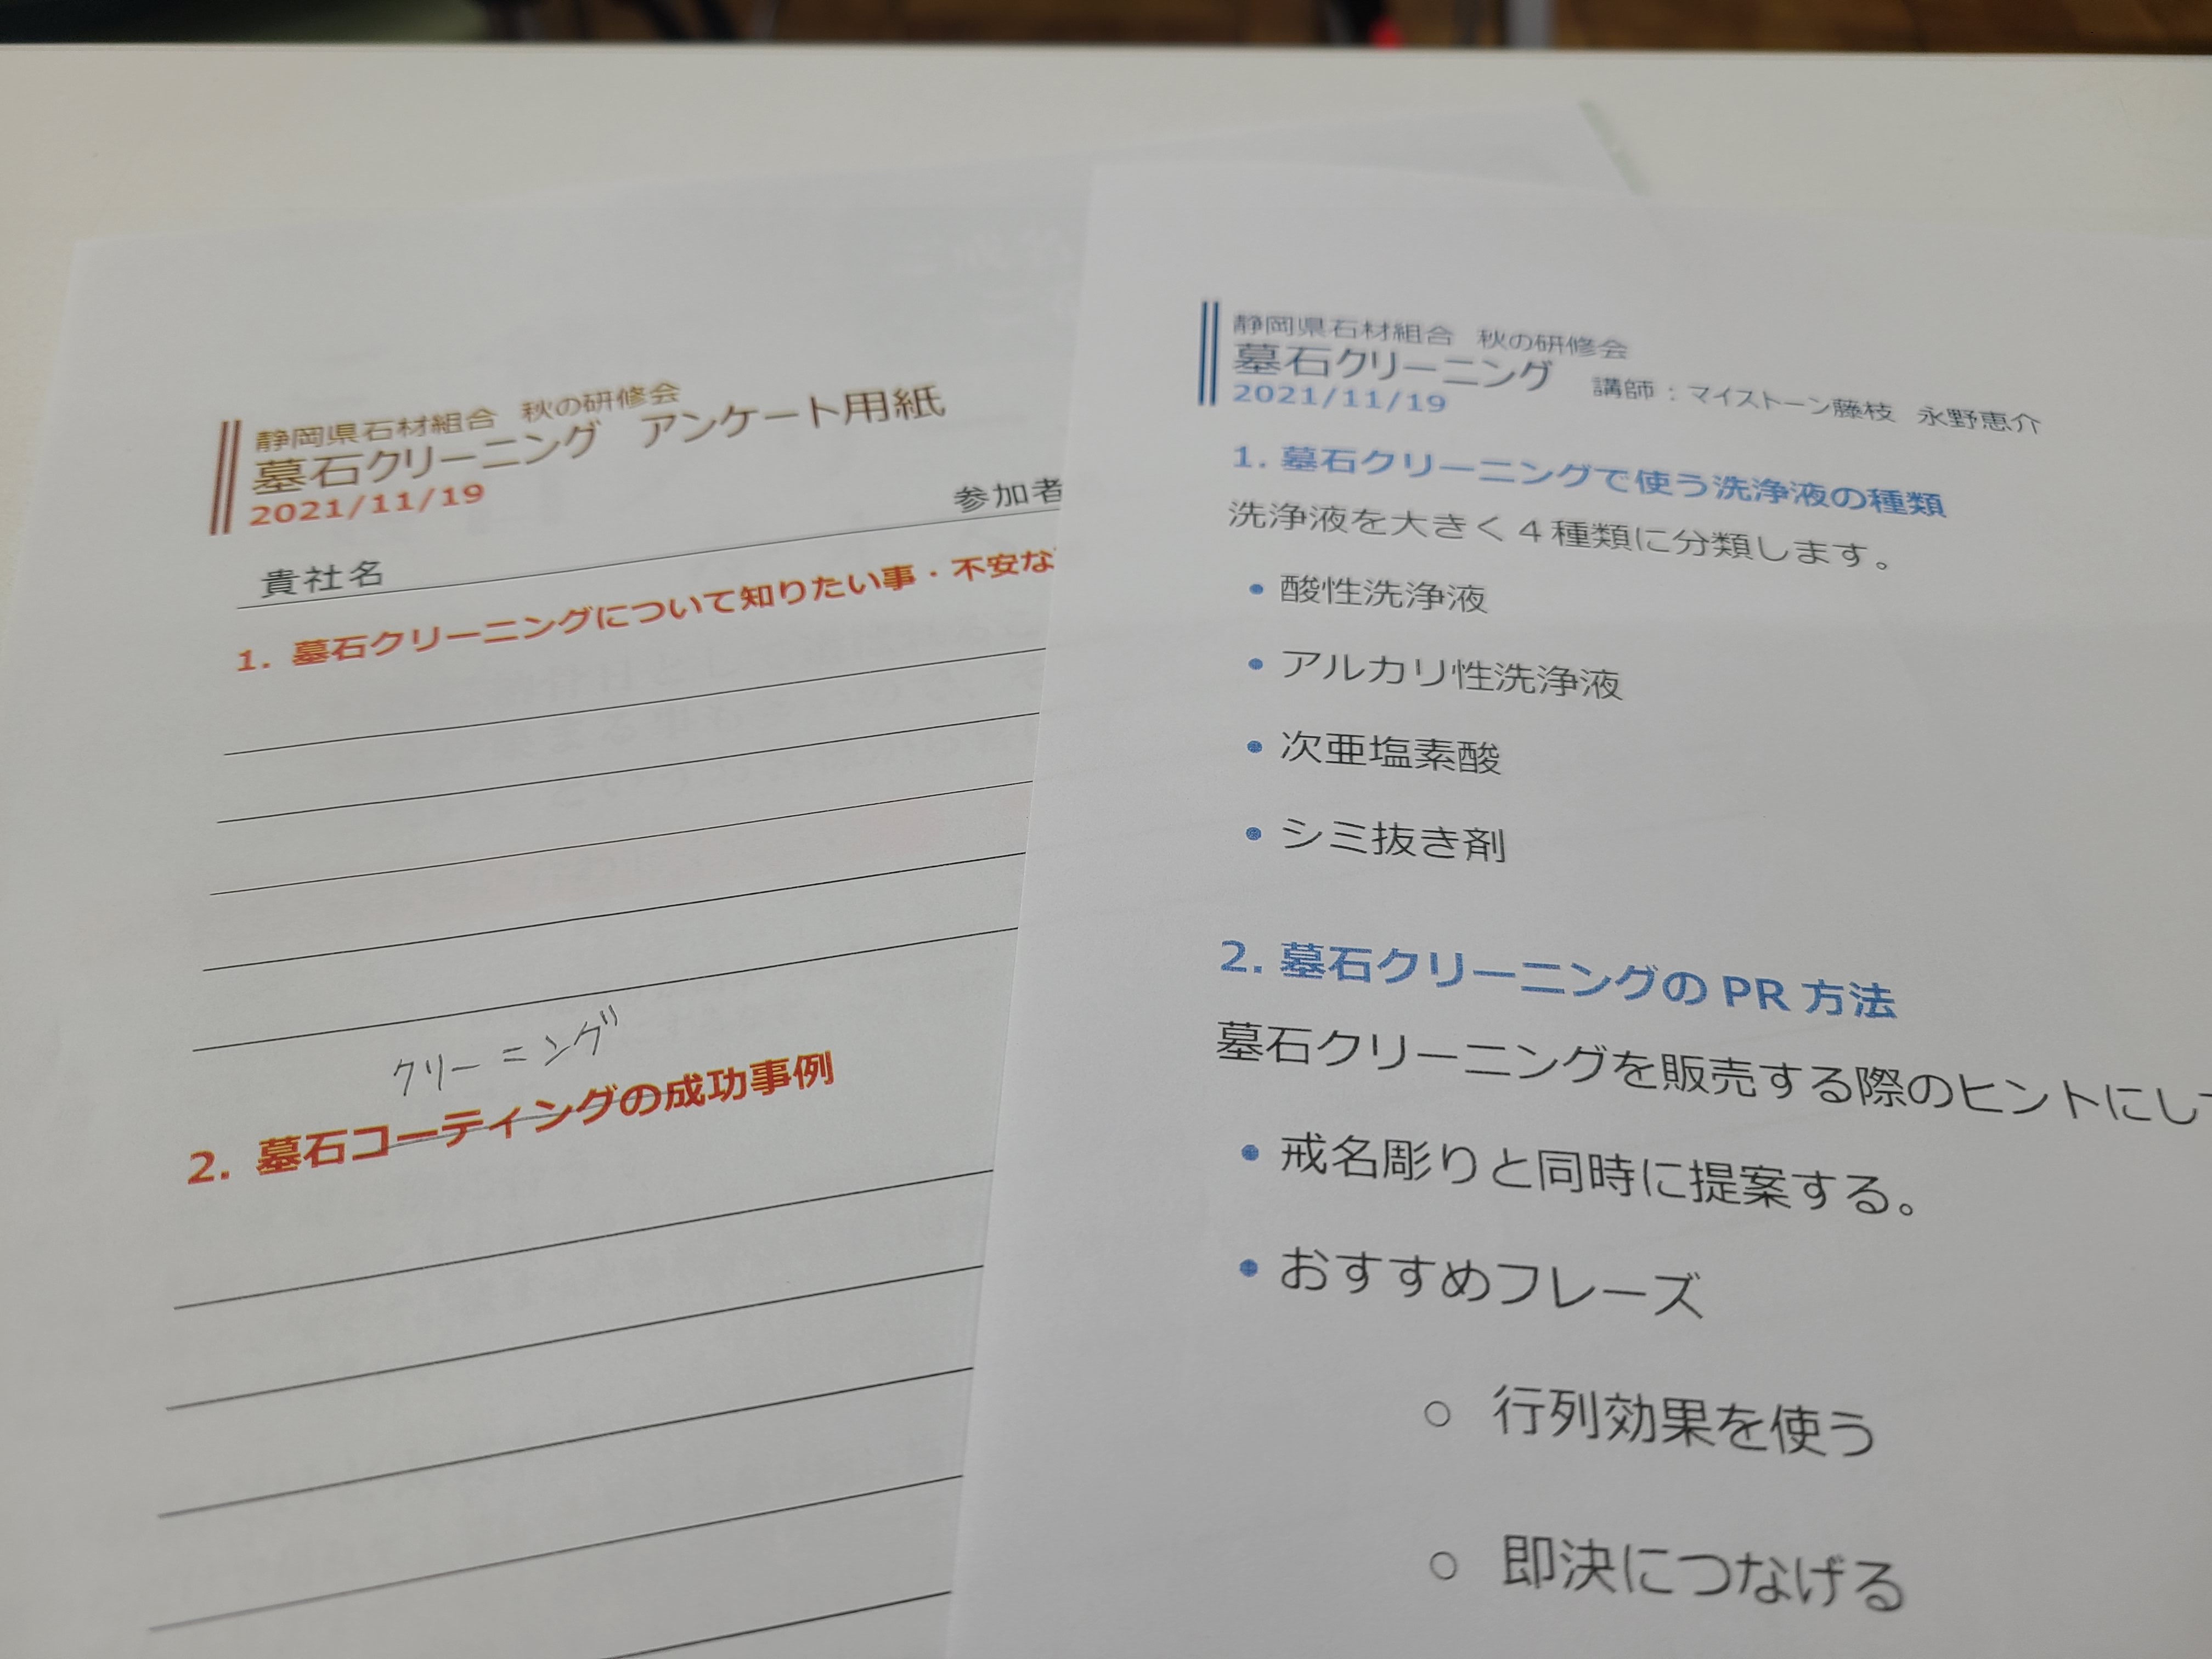 静岡県石材組合 秋の研修会
墓石クリーニング アンケート用紙
2021/11/19
参加者
貴社名
1. 墓石クリーニングについて知りたい事・不安な
クリーニング
2. 墓石コーティングの成功事例
静岡県石材組合 秋の研修会
墓石クリーニング 講師：マイストーン藤枝 永野恵介
2021/11/19
1. 墓石クリーニングで使う洗浄液の種類
洗浄液を大きく４種類に分類します。
• 酸性洗浄液
• アルカリ性洗浄液
• 次亜塩素酸
• シミ抜き剤
2. 墓石クリーニングの PR 方法
墓石クリーニングを販売する際のヒントにし
• 戒名彫りと同時に提案する。
• おすすめフレーズ
○ 行列効果を使う
○ 即決につなげる